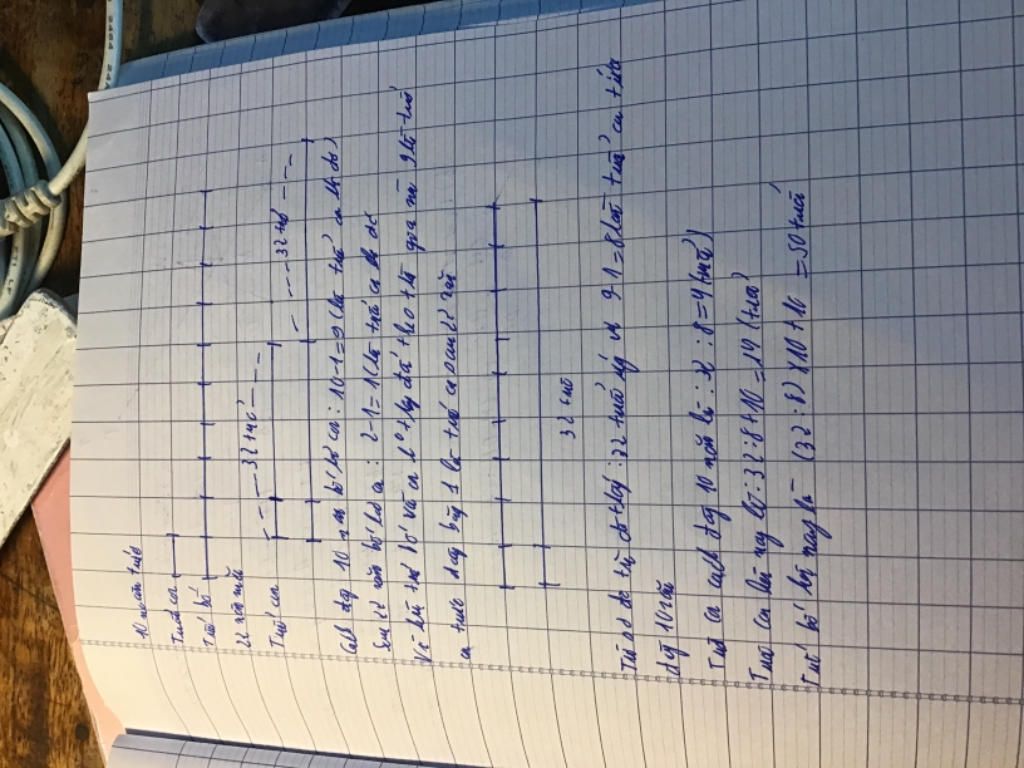 10 năm trước
Tuổi con
Tuổi bố
22 năm nữa
32 tuổi
Tuổi con
32 tuổi
10 năm bố hơn con: 10-1=9 (lần tuổi con lúc đó)
Sau 22 năm bố hơn con: 2-1=1 (lần tuổi con lúc đó
Vì tuổi bố và con thay đổi theo thời gian nên 9 lần tuổi
con trước đây bằng 1 lần tuổi con sau 22 năm
32 tuổi
Từ sơ đồ ta thấy: 32 tuổi ứng với 9-1=8 lần tuổi con trước
đây 10 năm
Tuổi con cách đây 10 năm là: 32:8=4 (tuổi)
Tuổi con hiện nay là: 32:8+10=14 (tuổi)
Tuổi bố hiện nay là (32:8)x10+10=50 tuổi